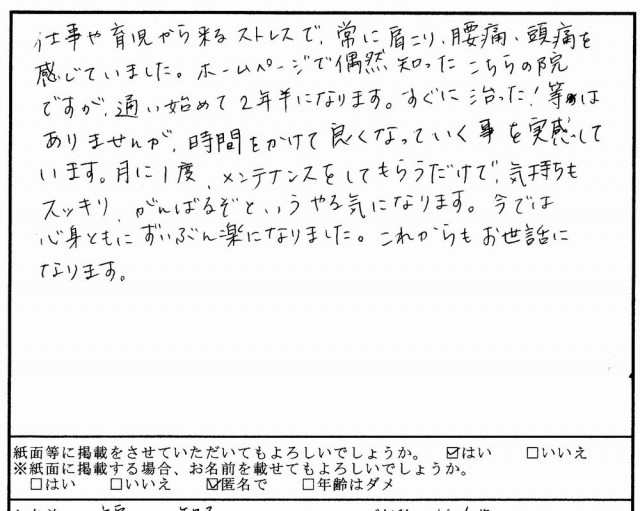 仕事や育児から来るストレスで、常に肩こり、腰痛、頭痛を
感じていました。ホームページで偶然知ったこちらの院
ですが、通い始めて2年半になります。すぐに治った!等は
ありませんが、時間をかけて良くなっていく事を実感して
います。月に1度、メンテナンスをしてもらうだけで、気持ちも
スッキリ、がんばるぞというやる気になります。今では
心身ともにずいぶん楽になりました。これからもお世話に
なります。
紙面等に掲載をさせていただいてもよろしいでしょうか。 ☑はい □いいえ
※紙面に掲載する場合、お名前を載せてもよろしいでしょうか。
□はい □いいえ ☑匿名で □年齢はダメ